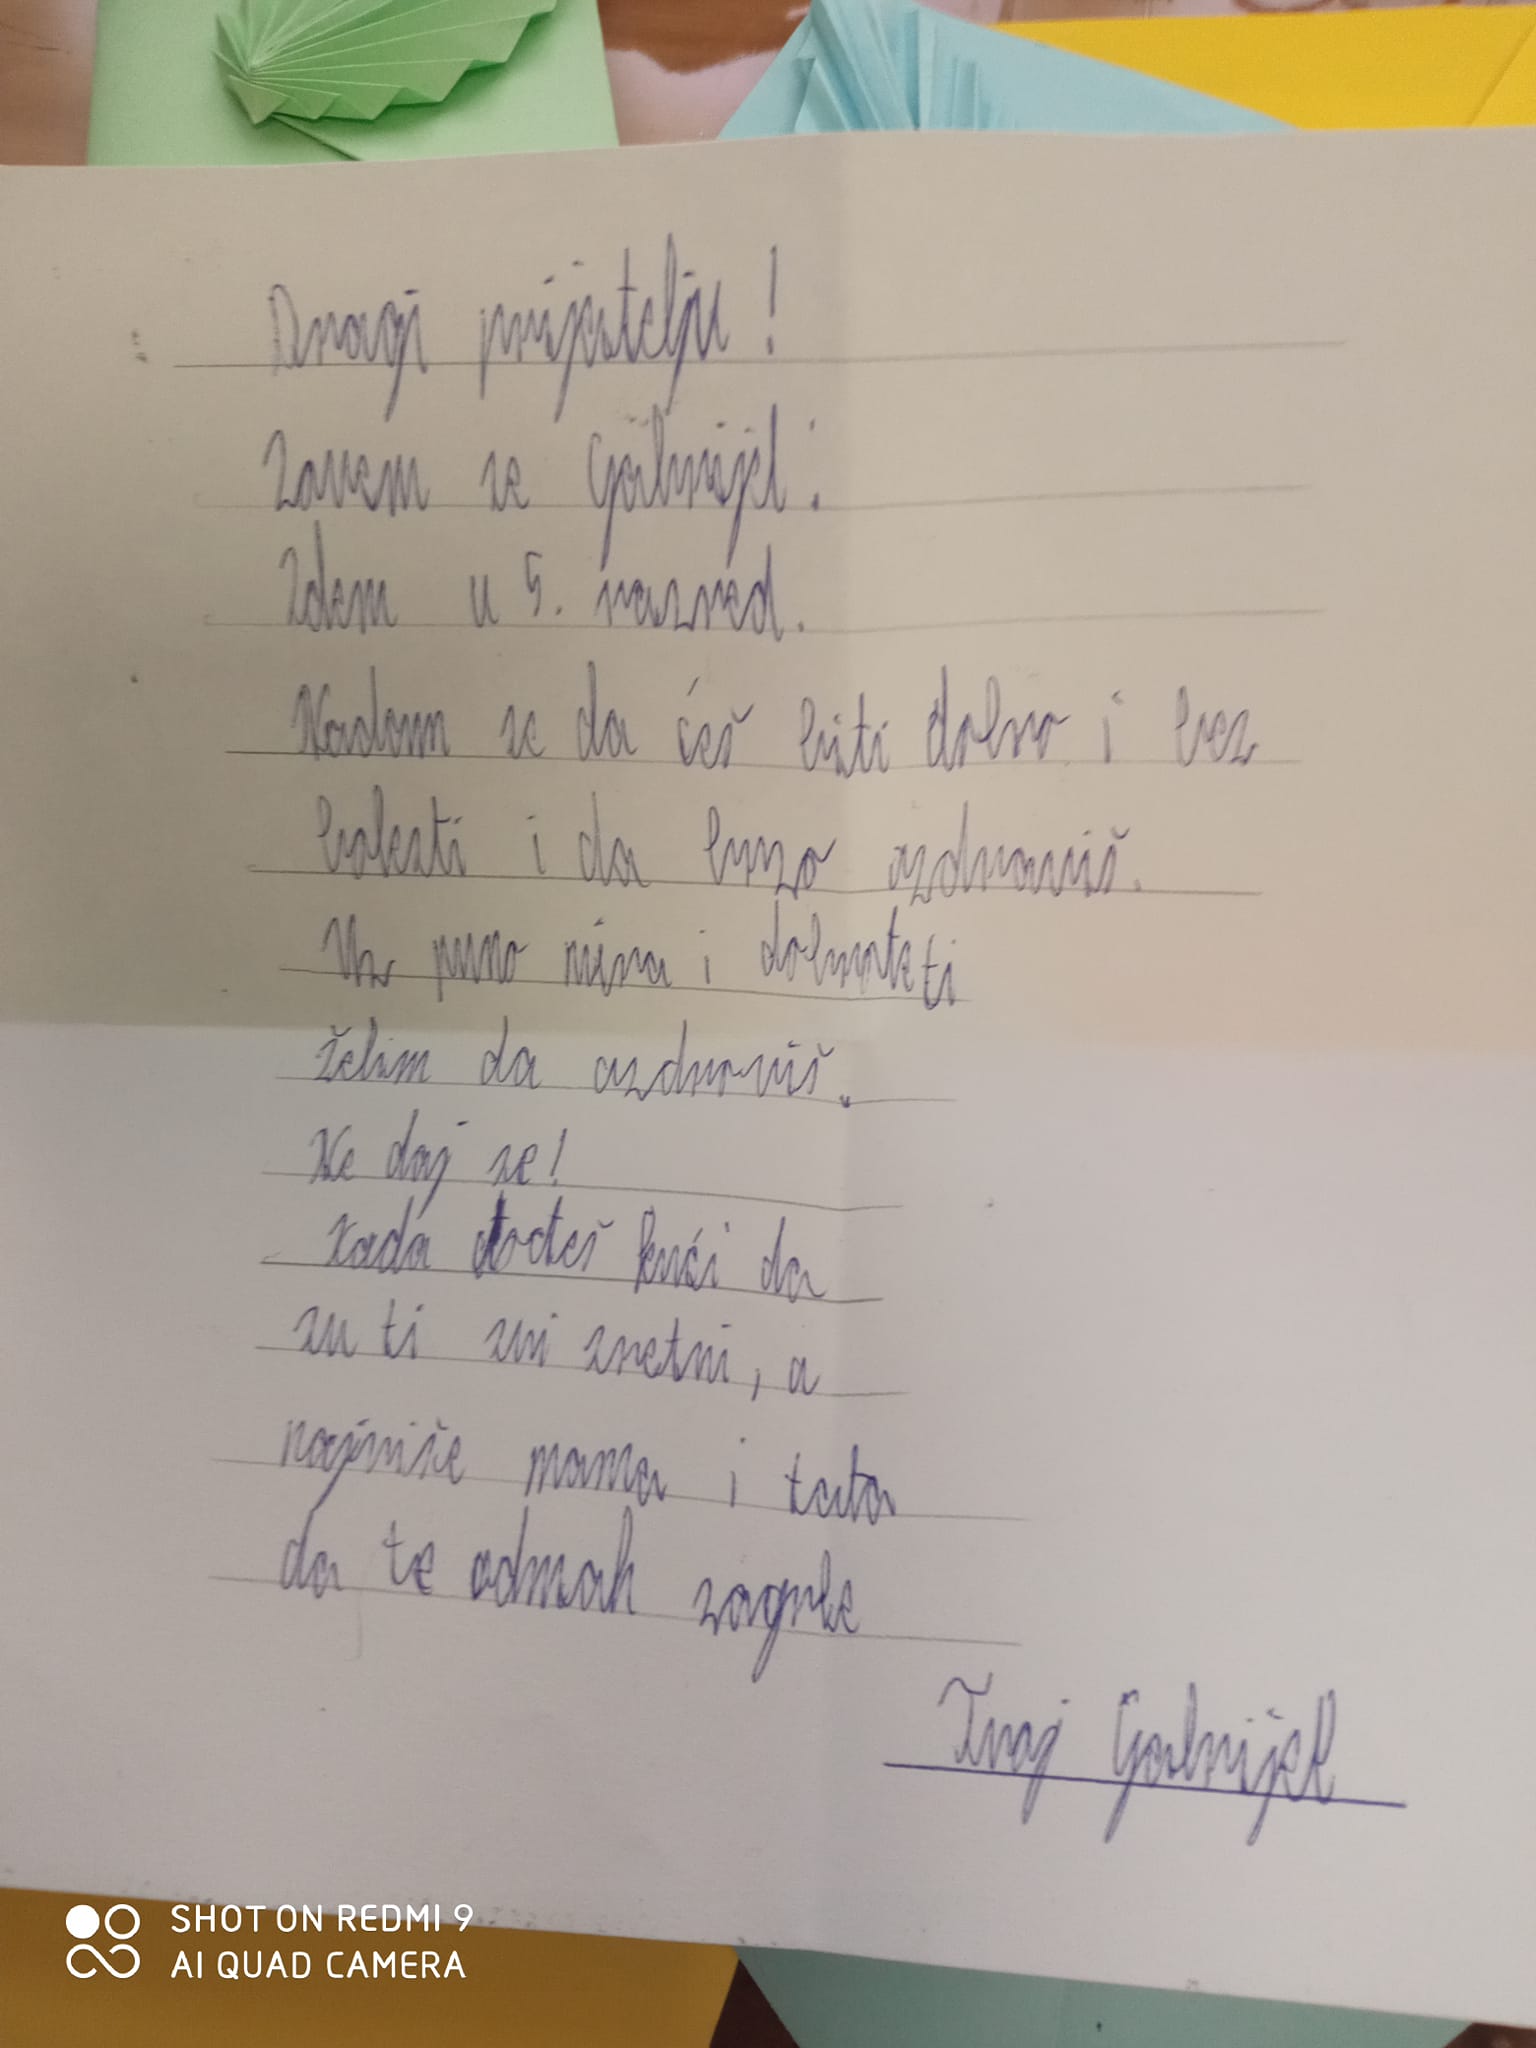 Dragi prijatelju!
Zovem se Gabrijel.
Idem u 5. razred.
Nadam se da ćeš biti dobro i bez
bolesti i da brzo ozdraviš.
Uz puno mira i dobrote ti
želim da ozdraviš.
Ne daj se!
Kada dođeš kući da
su ti svi sretni, a
najviše mama i tata
da te odmah zagrle
Tvoj Gabrijel
SHOT ON REDMI 9
AI QUAD CAMERA